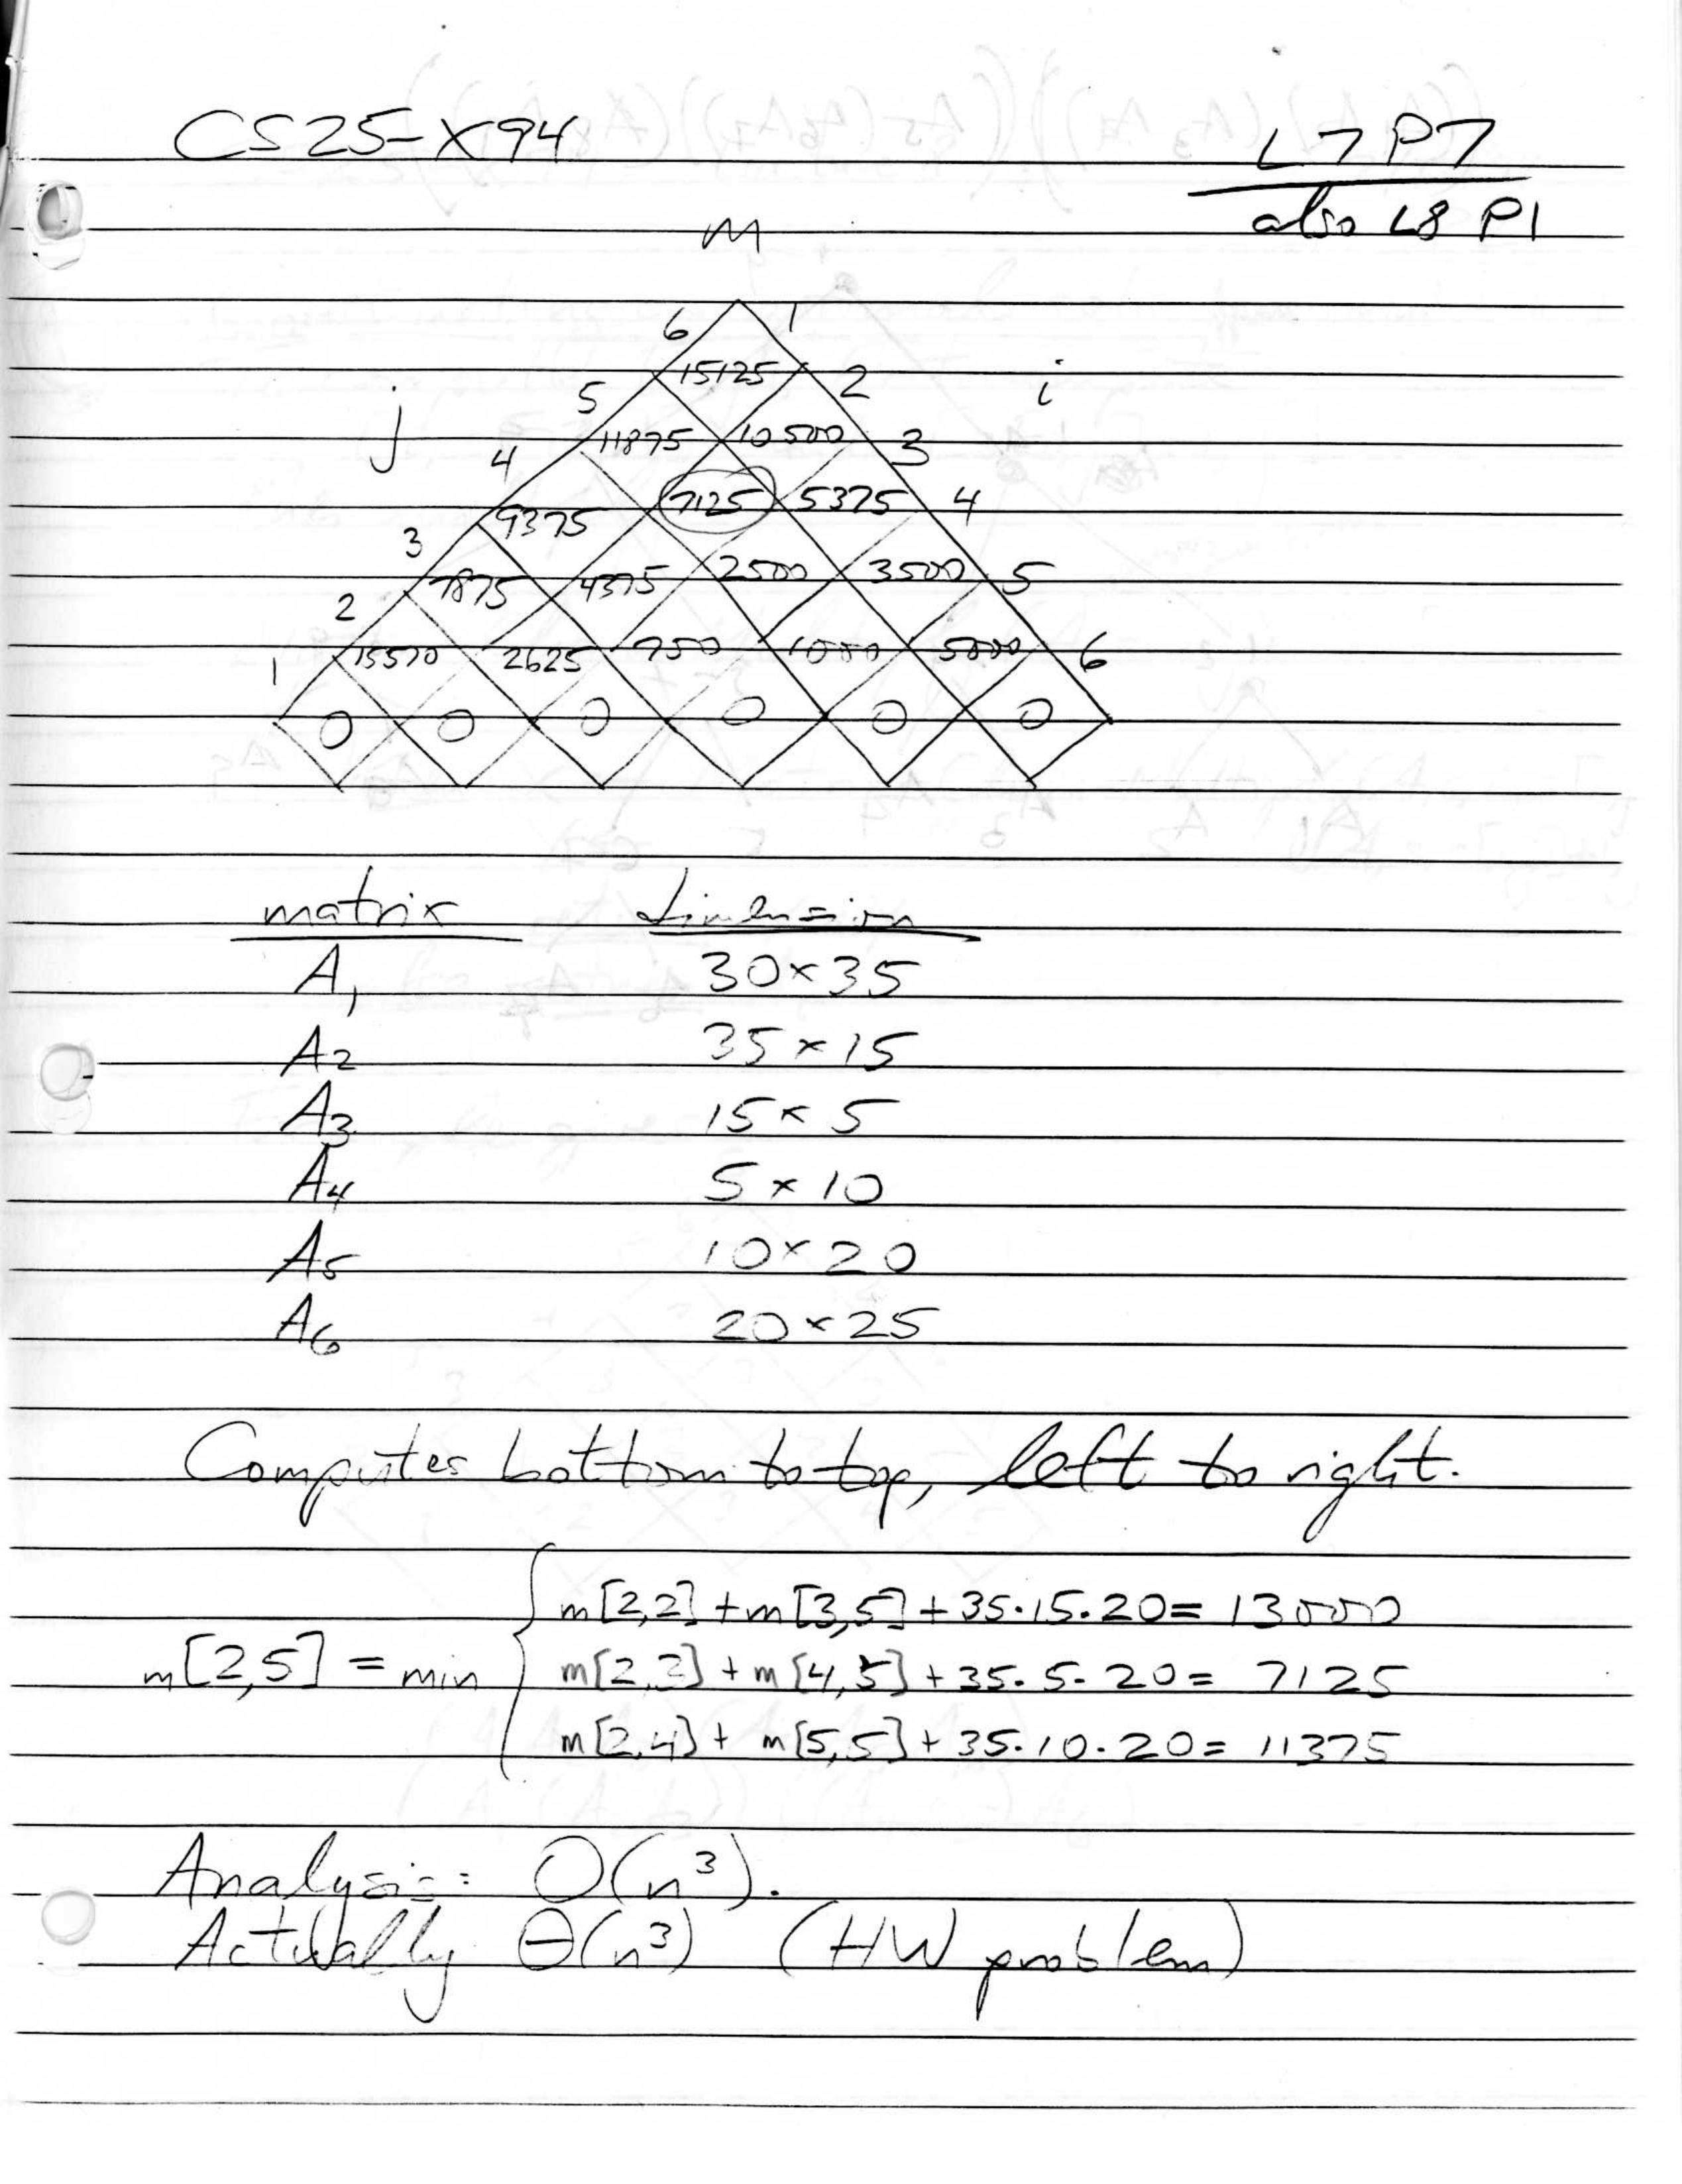 CS25-X94 L7 P7
also L8 P1
m
6 1
15125
5 2
j i
11875 10500
4 3
9375 7125 5375 4
3
7875 4375 2500 3500 5
2
1 15570 2625 750 1000 5000 6
0 0 0 0 0 0
matrix dimension
A1 30×35
A2 35×15
A3 15×5
A4 5×10
A5 10×20
A6 20×25
Computes bottom to top, left to right.
m[2,2] + m[3,5] + 35·15·20 = 13000
m[2,5] = min m[2,3] + m[4,5] + 35·5·20 = 7125
m[2,4] + m[5,5] + 35·10·20 = 11375
Analysis: O(n³).
Actually Θ(n³) (HW problem)